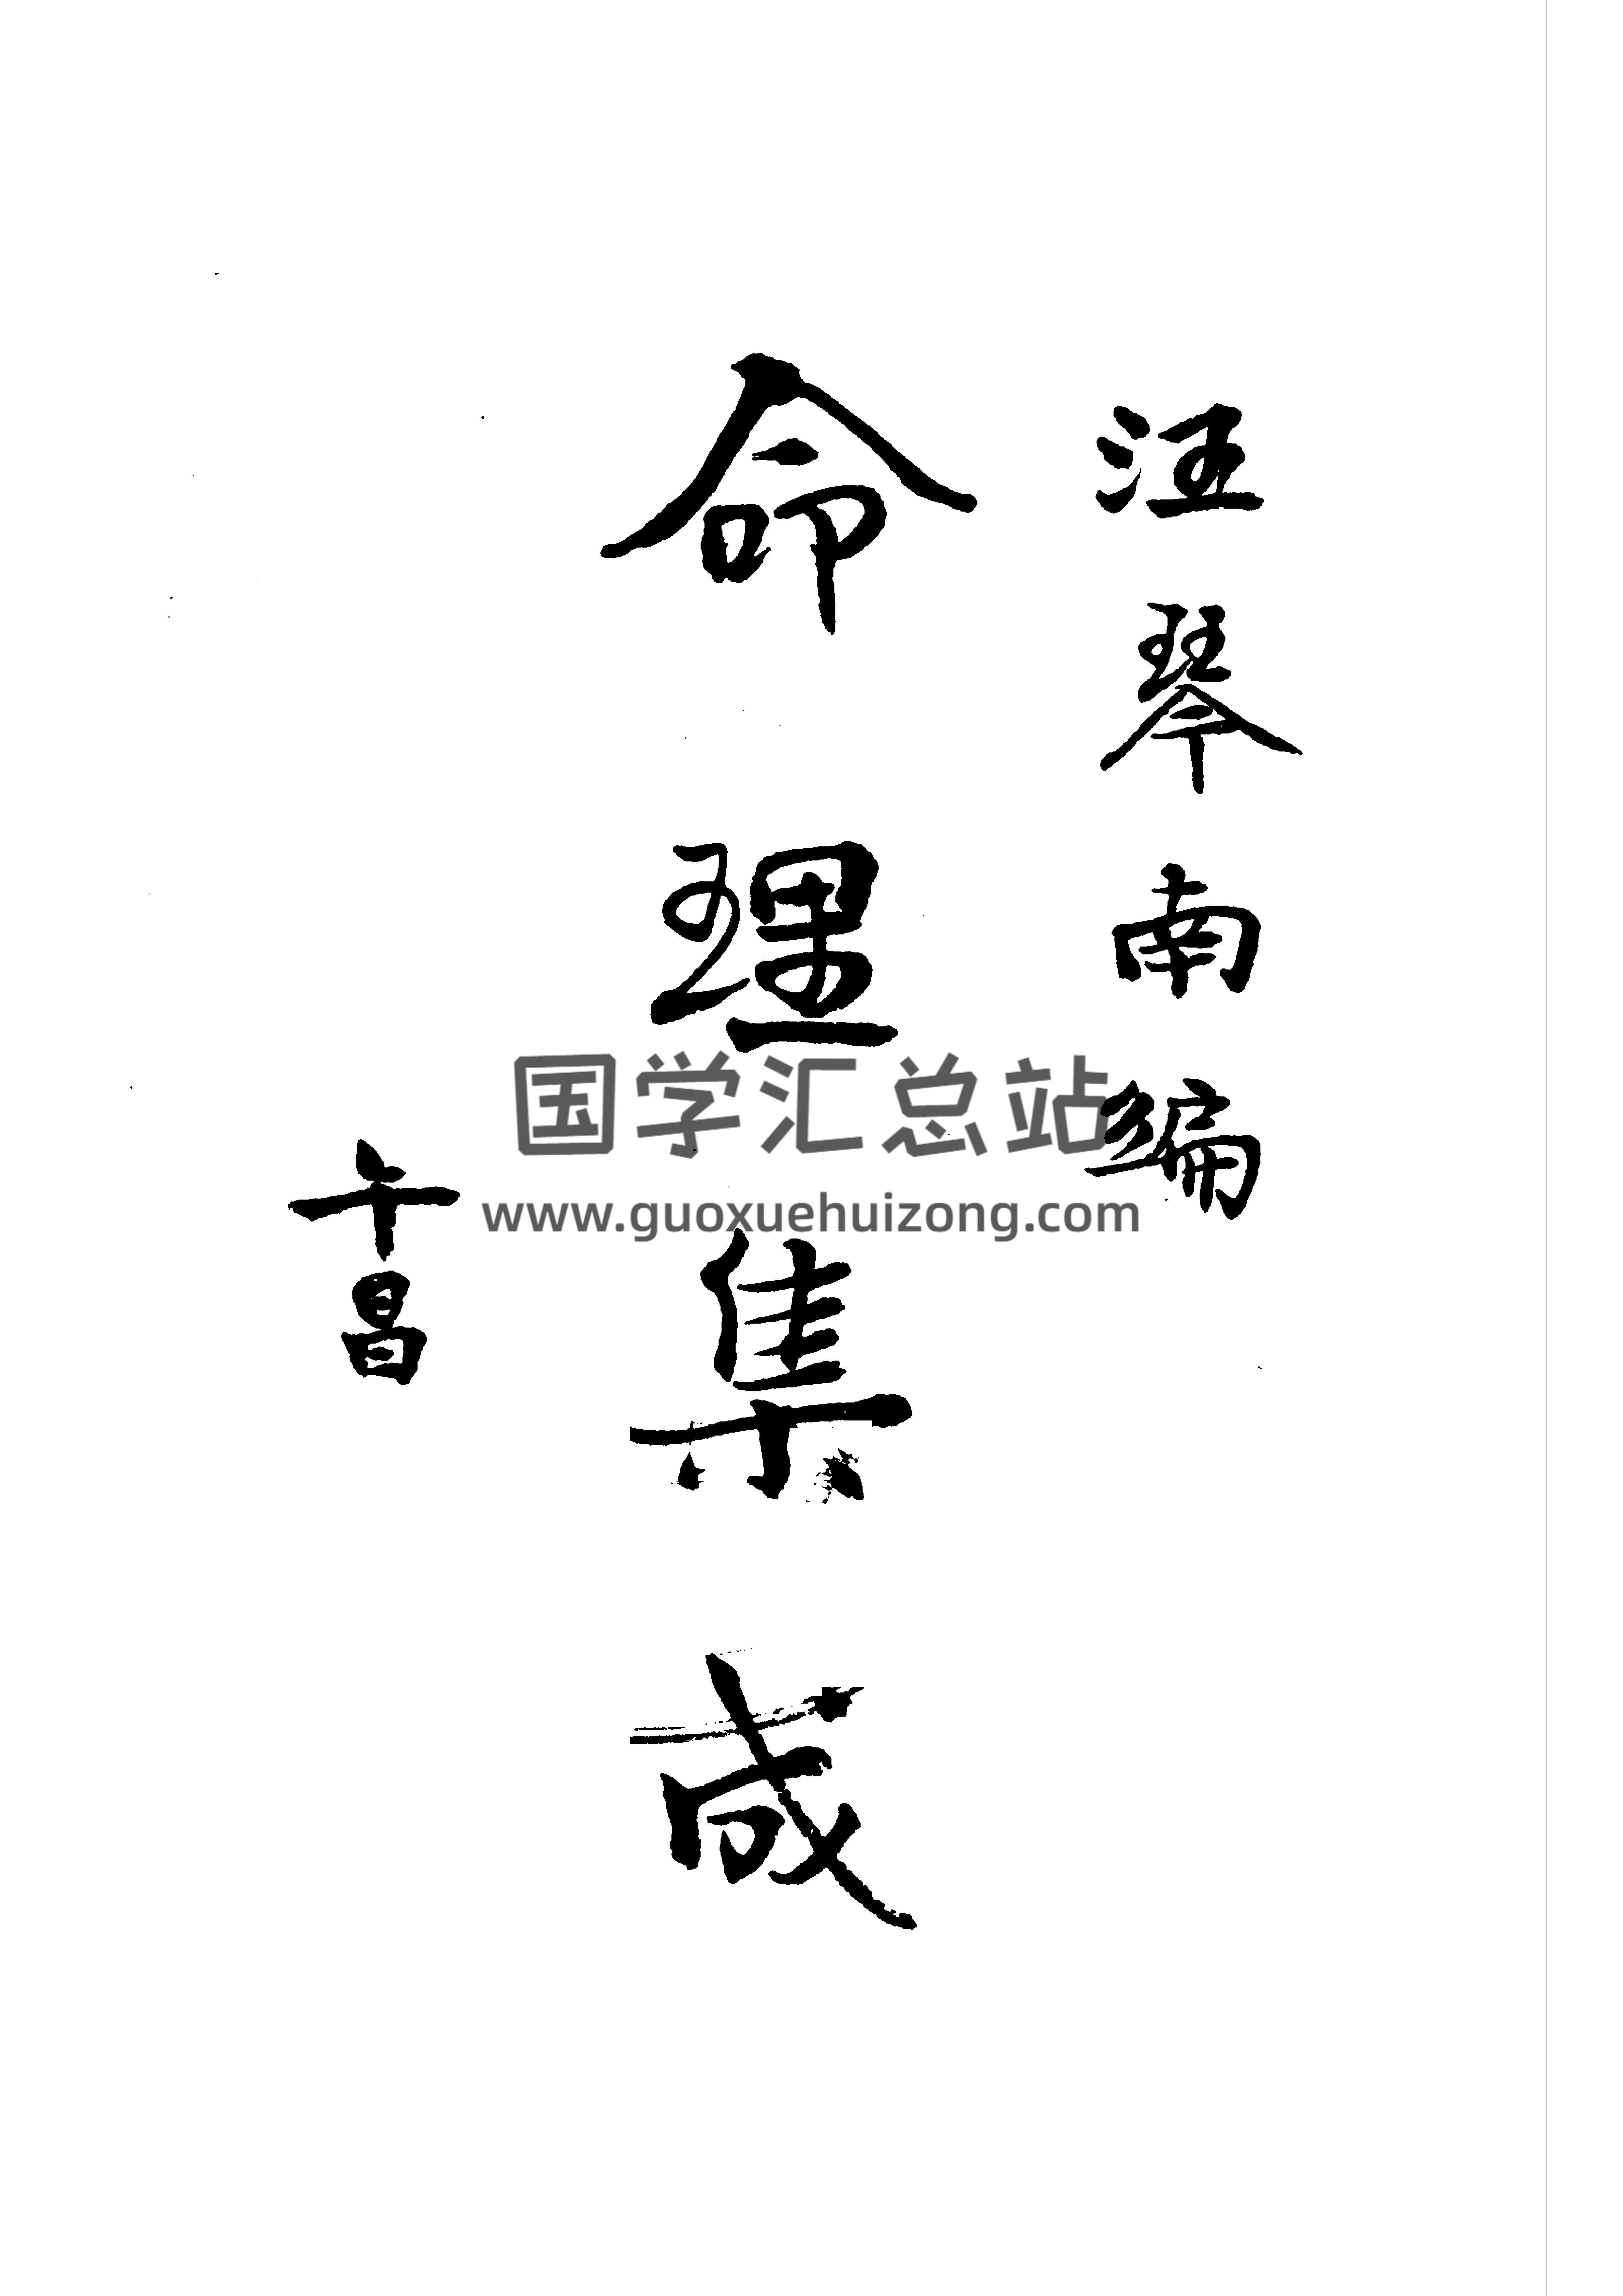 汪琴南编
命理集成
昌
国学汇总站
www.guoxuehuizong.com